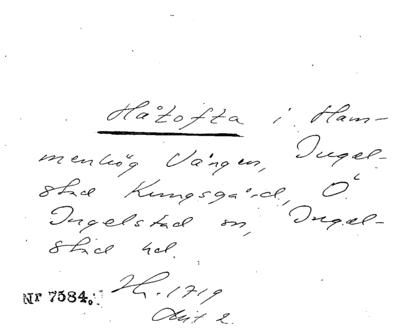 Håtofta i Ham-
menhög Vången, Ingel-
stad Kungsgård, Ö.
Ingelstad sn, Ingel-
stad hd.
Nr 7584. 1719
2.